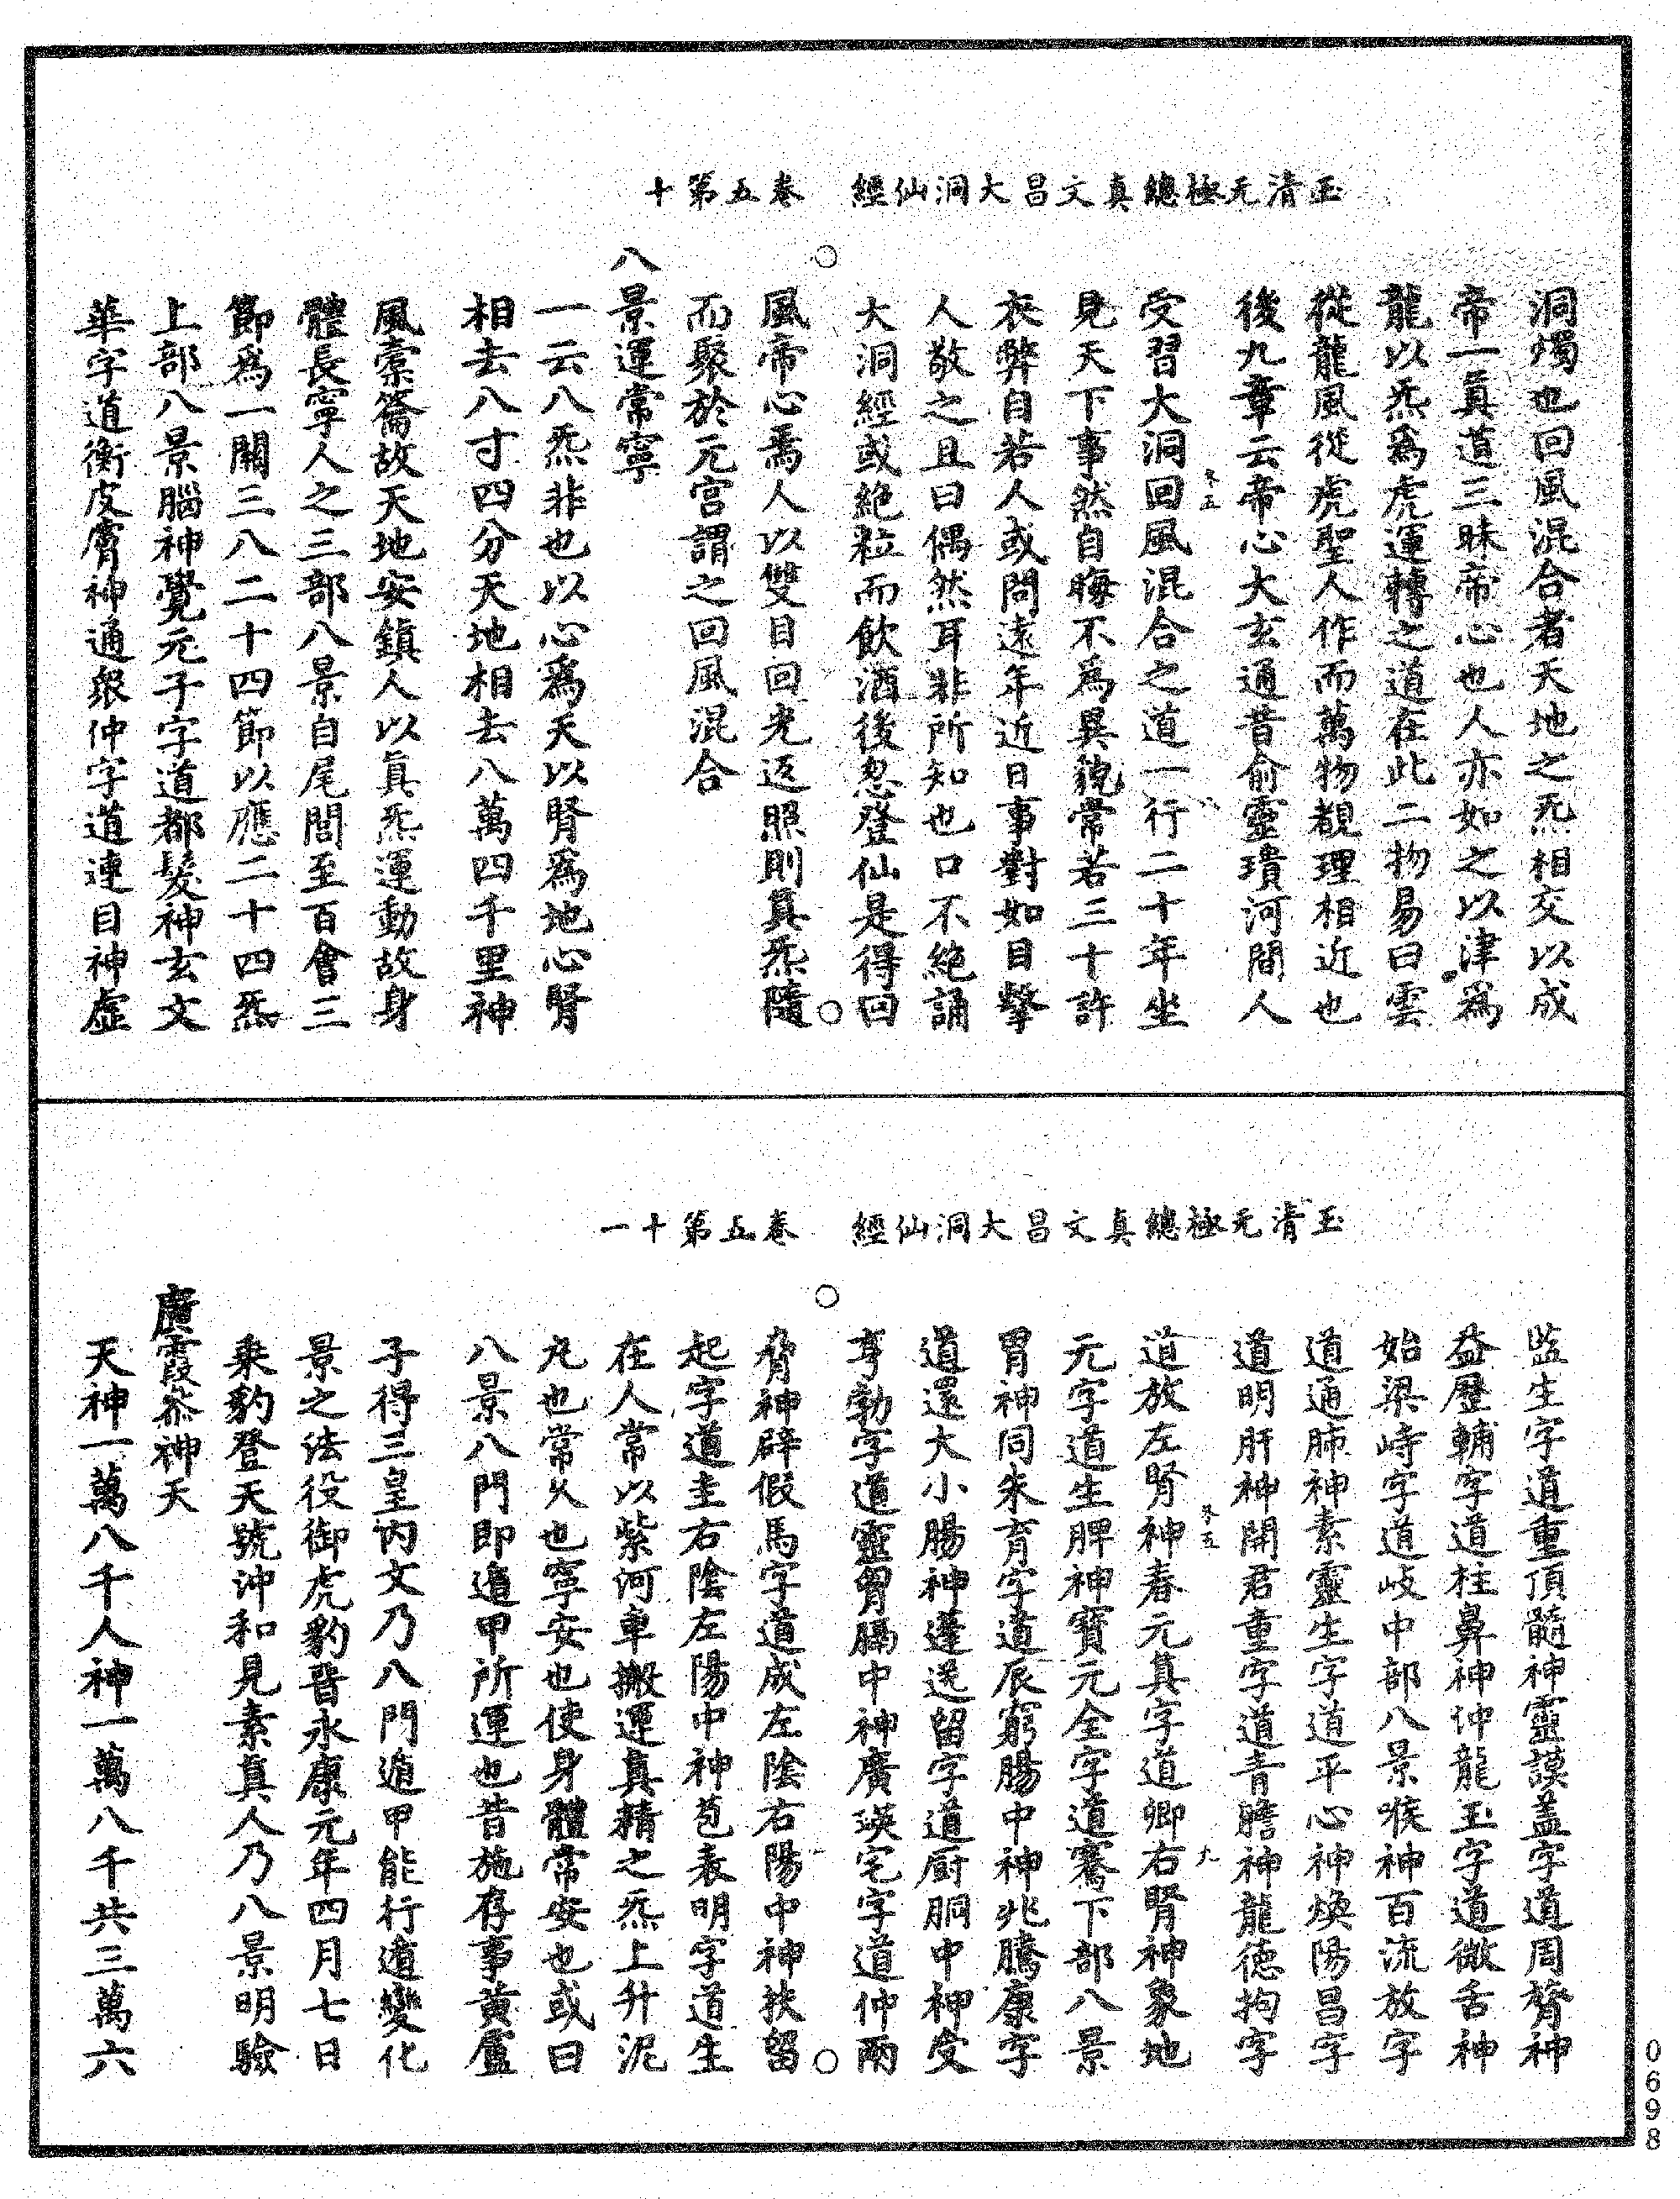 玉清无極總真文昌大洞仙經　卷五第十
洞燭也回風混合者天地之炁相交以成
帝一真道三昧帝心也人亦如之以津為
龍以炁為虎運轉之道在此二物易曰雲
從龍風從虎聖人作而萬物覩理相近也
後九章云帝心大玄通昔俞靈璝河間人
卷五
八
受習大洞回風混合之道一行二十年坐
見天下事然自晦不為異貌常若三十許
衣弊自若人或問遠年近日事對如目擊
人敬之且曰偶然耳非所知也口不絕誦
大洞經或絕粒而飲酒後忽登仙是得回
風帝心焉人以雙目回光返照則真炁隨
而聚於元宮謂之回風混合
八景運常寧
一云八炁非也以心為天以腎為地心腎
相去八寸四分天地相去八萬四千里神
風橐籥故天地安鎮人以真炁運動故身
體長寧人之三部八景自尾閭至百會三
節為一關三八二十四節以應二十四炁
上部八景腦神覺元子字道都髮神玄文
華字道衡皮膚神通眾仲字道連目神虛
玉清无極總真文昌大洞仙經　卷五第十一
監生字道重頂髓神靈謨蓋字道周膂神
益歷輔字道柱鼻神仲龍玉字道微舌神
始梁峙字道岐中部八景喉神百流放字
道通肺神素靈生字道平心神煥陽昌字
道明肝神開君重字道青膽神龍德拘字
卷五
九
道放左腎神春元真字道卿右腎神象地
元字道生脾神寶元全字道騫下部八景
胃神同朱育字道辰窮腸中神兆騰康字
道還大小腸神蓬送留字道廚胴中神受
亨勃字道靈胃膈中神廣瑛宅字道仲兩
脅神辟假馬字道成左陰右陽中神扶留
起字道圭右陰左陽中神苞表明字道生
在人常以紫河車搬運真精之炁上升泥
丸也常火也寧安也使身體常安也或曰
八景八門即遁甲所運也昔施存事黃盧
子得三皇內文乃八門遁甲能行遁變化
景之法役御虎豹晉永康元年四月七日
乘豹登天號沖和見素真人乃八景明驗
廣霞叅神天
天神一萬八千人神一萬八千共三萬六
0698